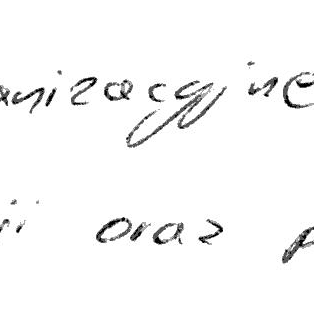 anizacyjne
ji oraz p